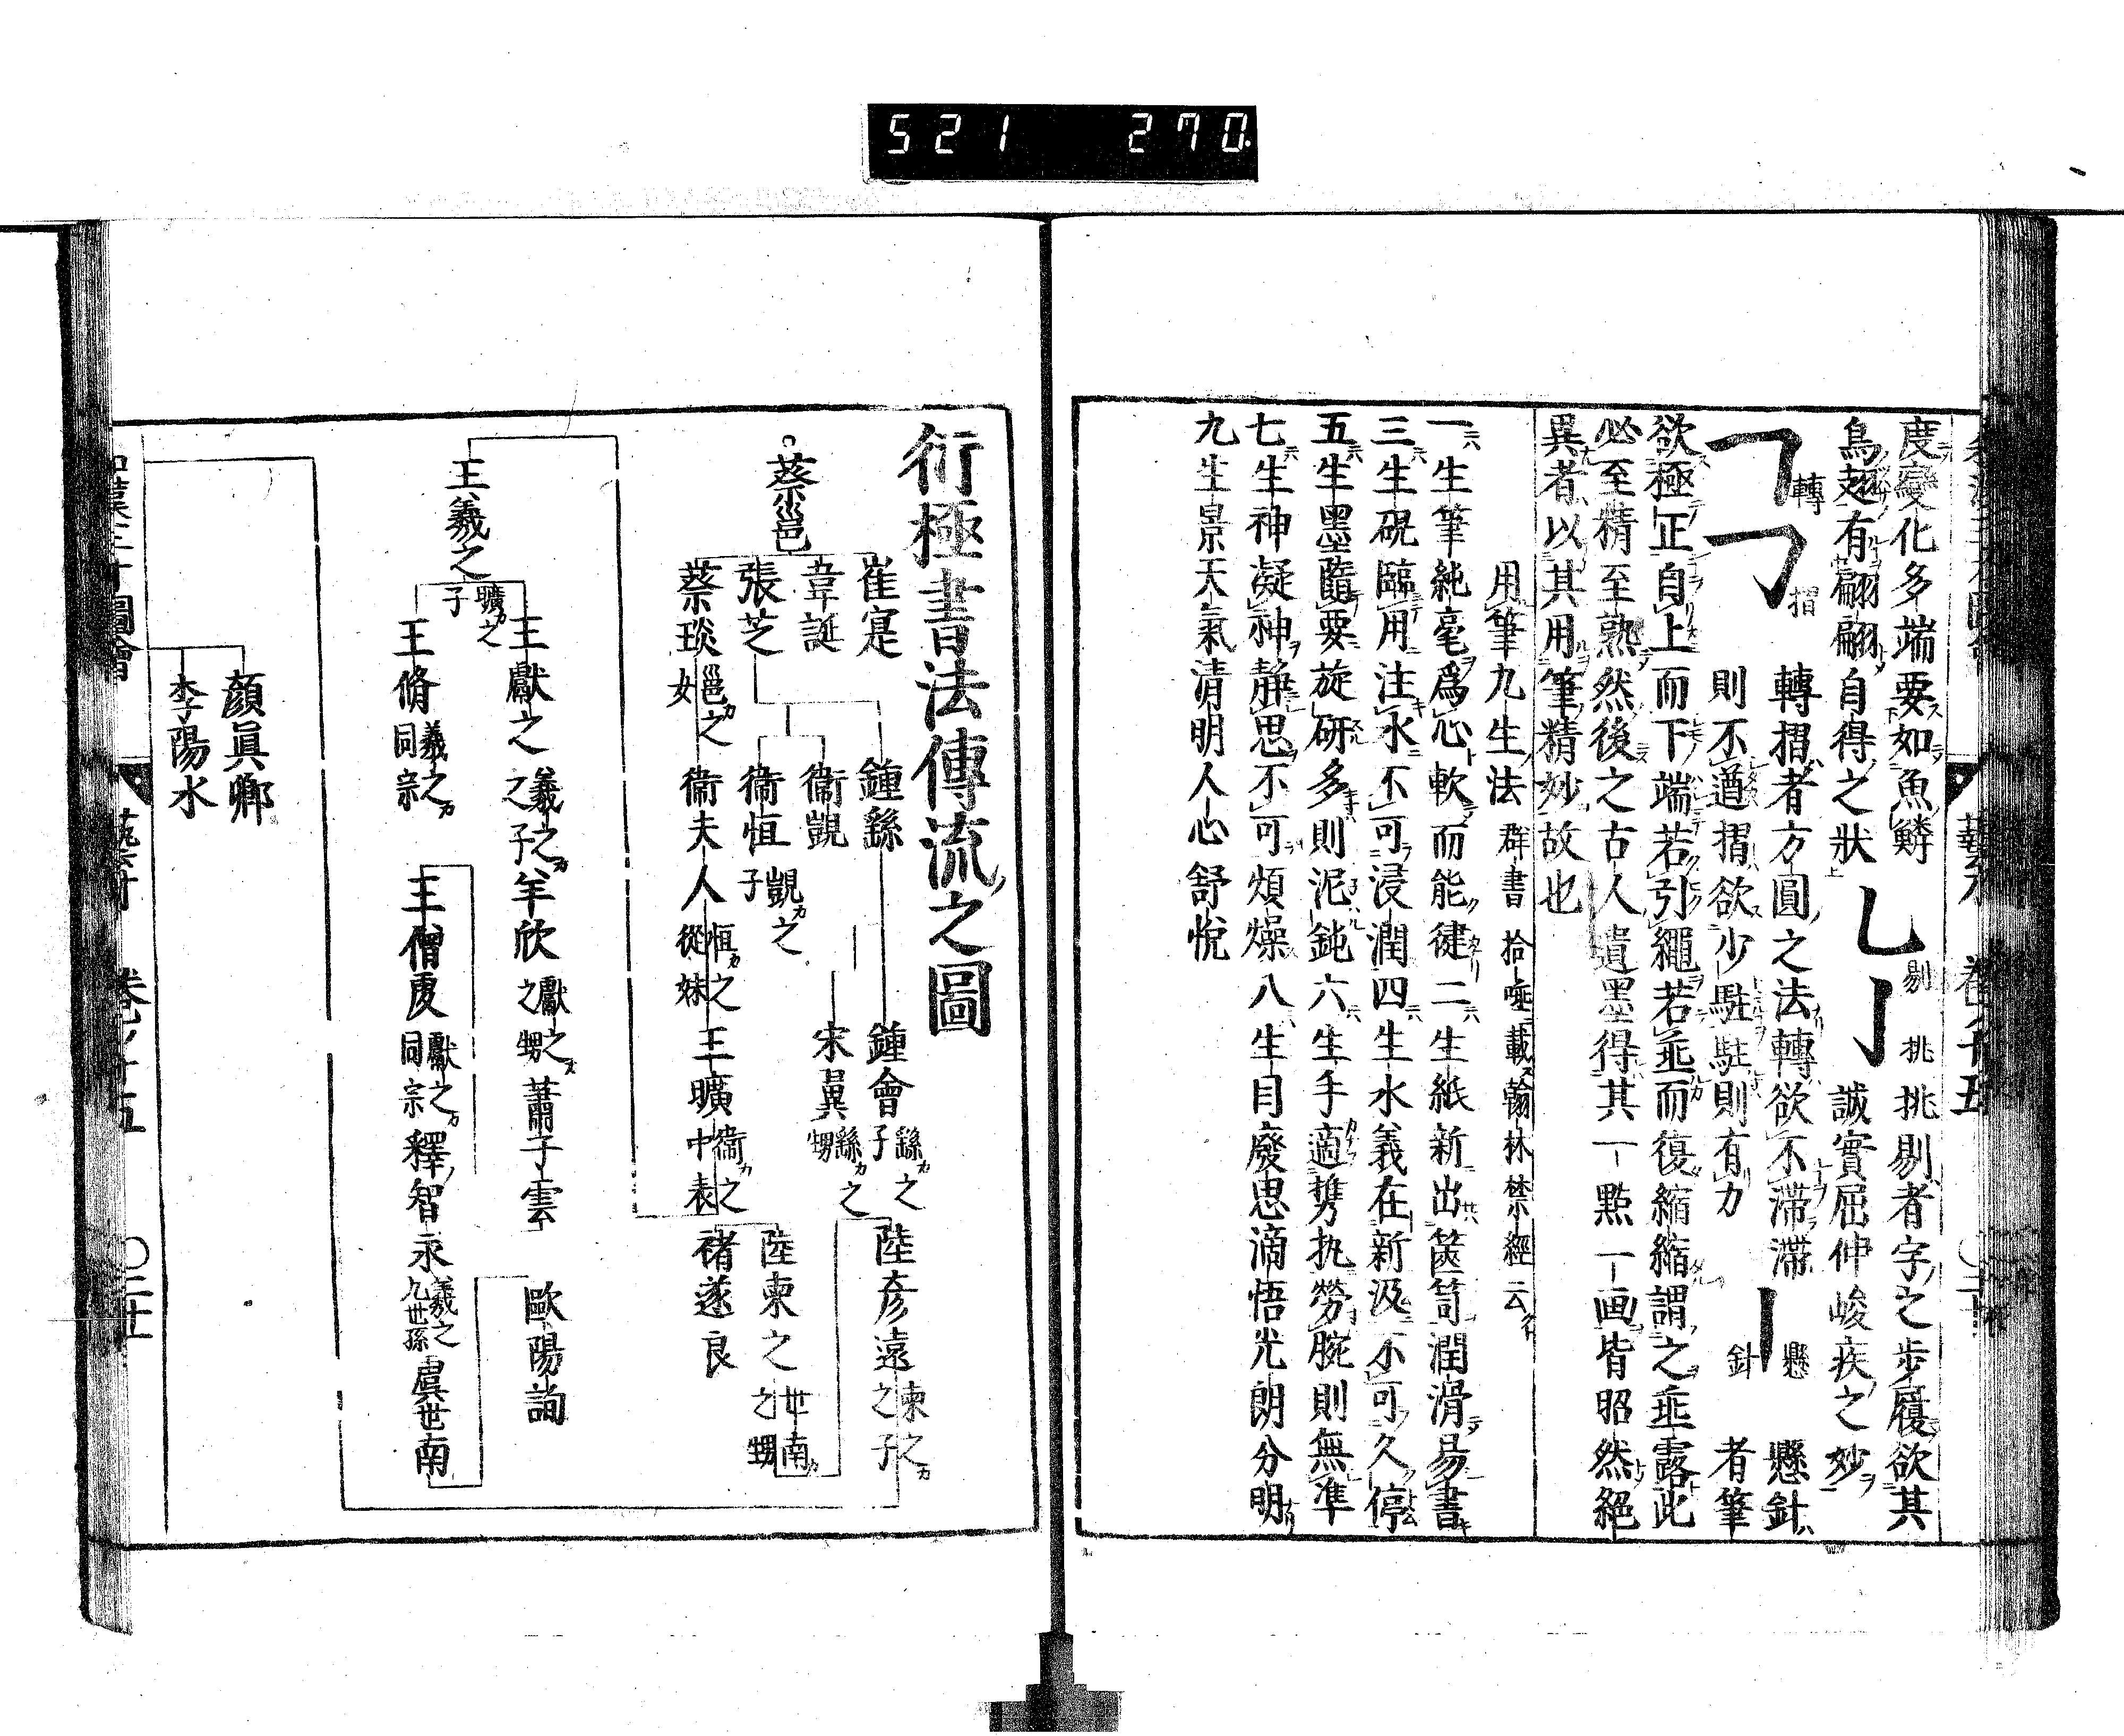 521 270
度變化多端要如魚鱗
鳥翅有翩翩自得之狀
剔
挑
挑剔者字之步履欲其
誠實屈伸峻疾之妙
轉
摺
轉摺者方圓之法轉欲不滯滯
則不遒摺欲少駐駐則有力
懸
針
懸針
者筆
欲極正自上而下端若引繩若垂而復縮縮謂之垂露此
必至精至熟然後之古人遺墨得其一點一画皆昭然絕
異者以其用筆精妙故也
用筆九生法 群書拾唾載翰林禁經云
一生筆純毫爲心軟而能健二生紙新出篋笥潤滑易書
三生硯臨用注水不可浸潤四生水義在新汲不可久停
五生墨隨要旋研多則泥鈍六生手適携执勞腕則無准
七生神凝神靜思不可煩燥八生目廢思滴悟光朗分明
九生景天氣清明人心舒悅
衍極書法傳流之圖
蔡邕
崔寔
韋誕
張芝
蔡琰 邕之女
鍾繇
衞覬
衞恒 覬之子
衞夫人 恒之從妹
鍾會 繇之子
宋翼 繇之甥
王曠 衞之中表
陸彦遠 柬之之子
陸柬之 世南之甥
褚遂良
王羲之 曠之子
王獻之 羲之之子
羊欣 獻之之甥
蕭子雲
歐陽詢
王脩 羲之同宗
王僧虔 獻之同宗
釋智永 羲之九世孫
虞世南
顏眞卿
李陽氷
藝才 卷之十五